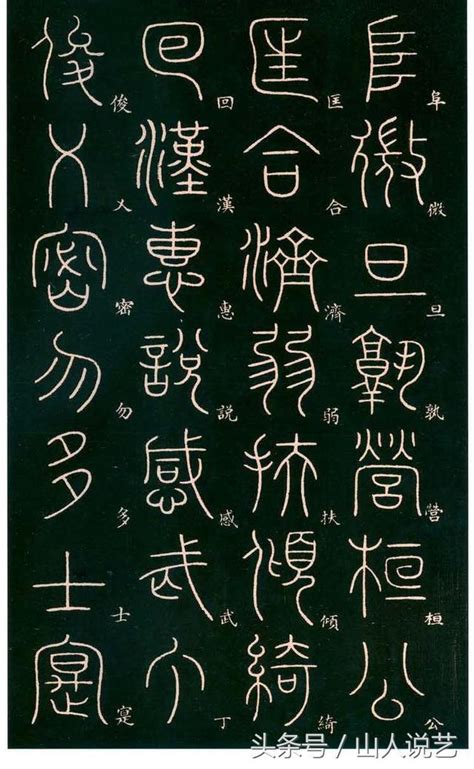 阜微旦孰營桓公
匡合濟弱扶傾綺
回漢惠說感武丁
俊乂密勿多士寔
头条号/山人说艺